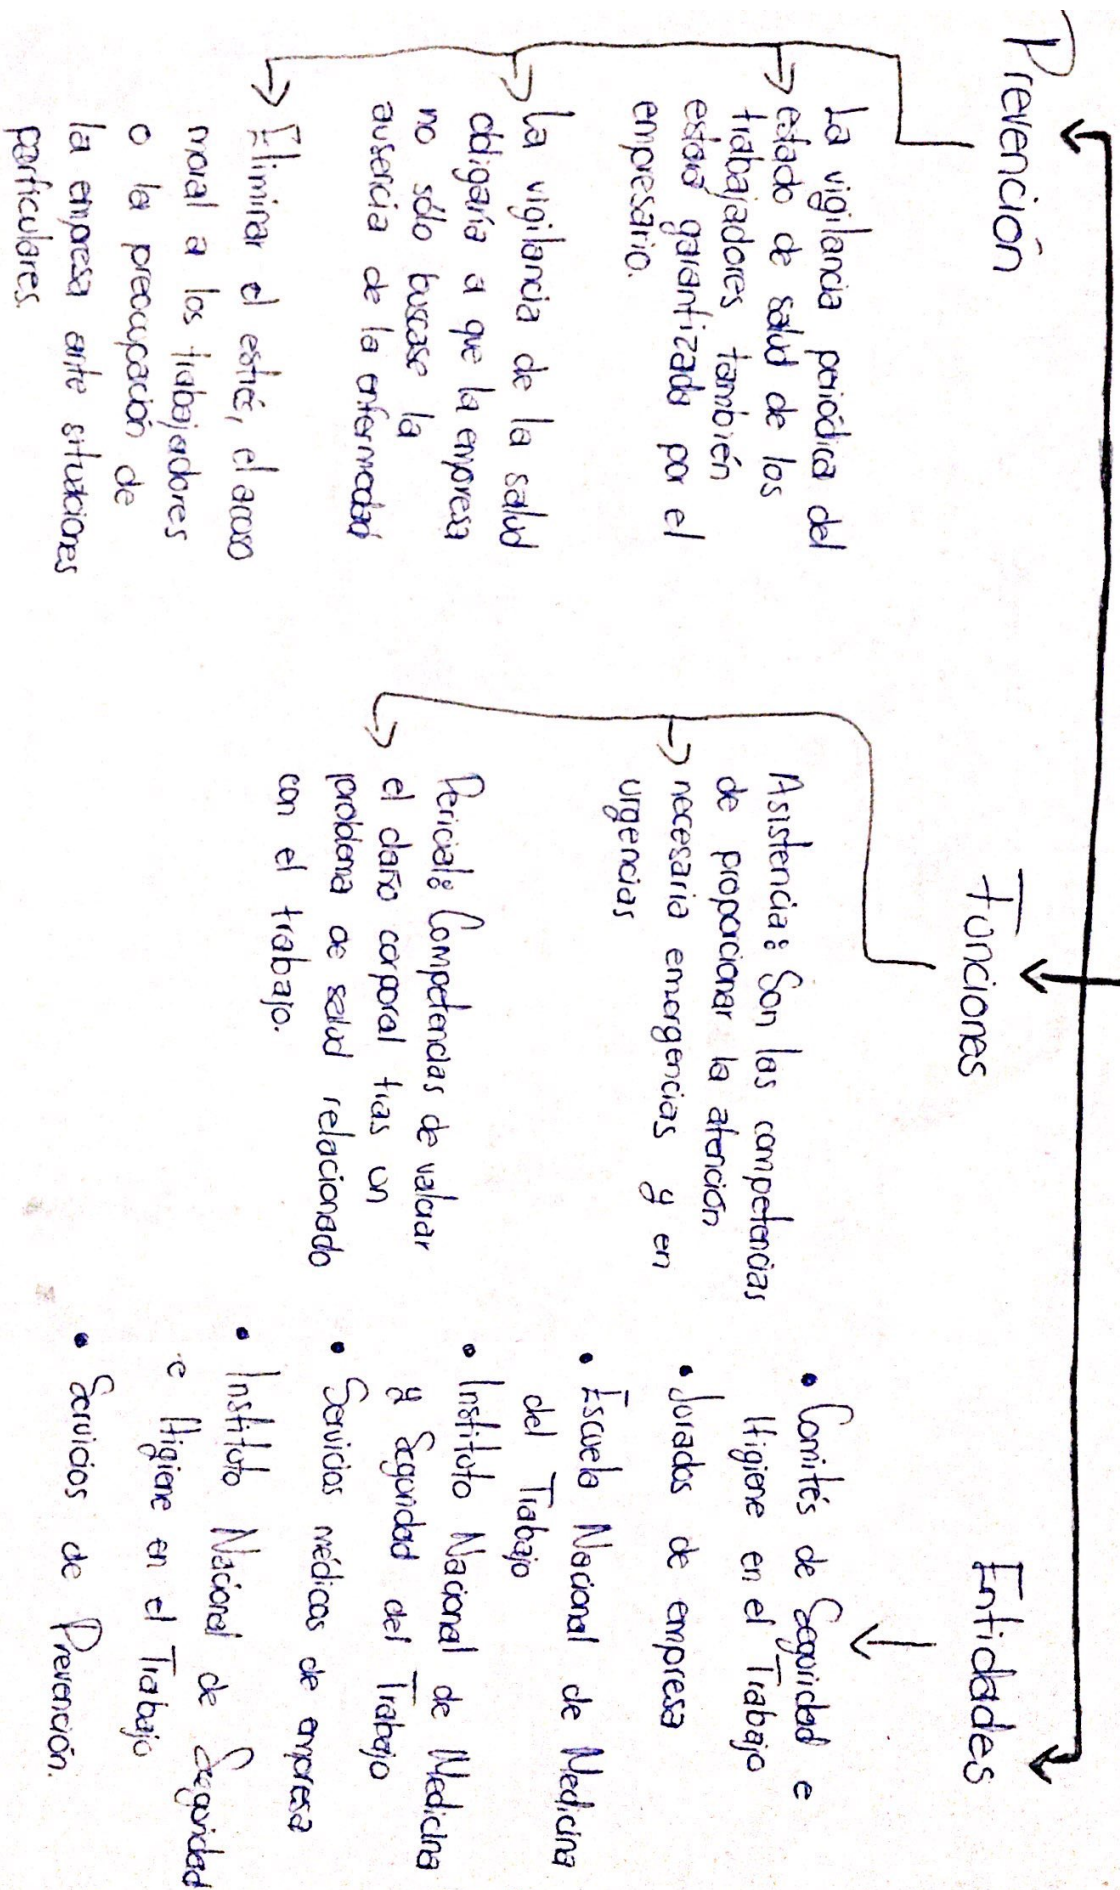 Prevención
La vigilancia periódica del
estado de salud de los
trabajadores también
estará garantizada por el
empresario.
La vigilancia de la salud
obligaría a que la empresa
no sólo buscase la
ausencia de la enfermedad
Eliminar el estrés, el acoso
moral a los trabajadores
o la preocupación de
la empresa ante situaciones
particulares.
Funciones
Asistencia: Son las competencias
de proporcionar la atención
necesaria emergencias y en
urgencias
Pericial: Competencias de valorar
el daño corporal tras un
problema de salud relacionado
con el trabajo.
Entidades
• Comités de Seguridad e
Higiene en el Trabajo
• Jurados de empresa
• Escuela Nacional de Medicina
del Trabajo
• Instituto Nacional de Medicina
y Seguridad del Trabajo
• Servicios médicos de empresa
• Instituto Nacional de Seguridad
e Higiene en el Trabajo
• Servicios de Prevención.